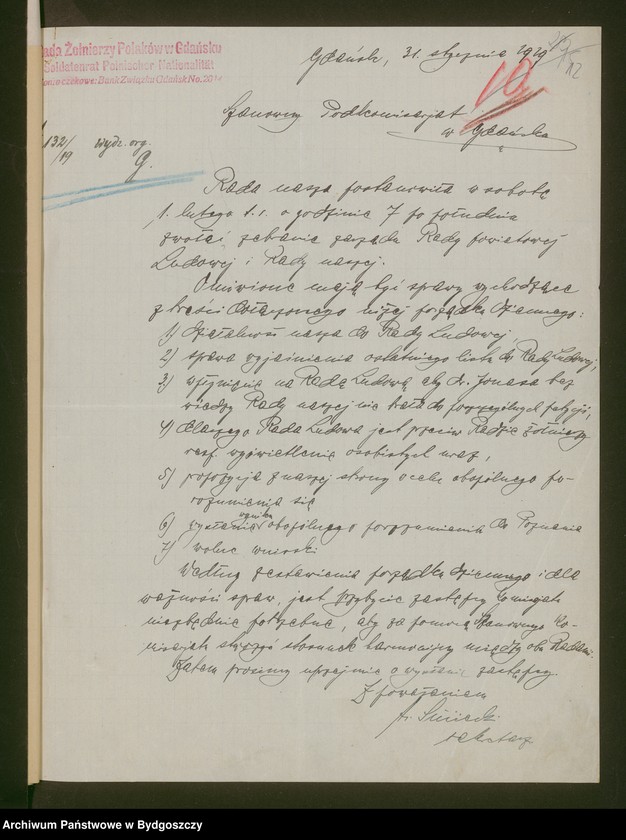 Rada Żołnierzy Polaków w Gdańsku
Soldatenrat Polnischer Nationalität
Konto czekowe: Bank Związku Gdańsk No. 20
Gdańsk, 31. stycznia 1919
12
10
Szanowny Podkomisarjat
w Gdańsku
132/19 Wydz. org.
G.
Rada nasza postanowiła w sobotę
1. lutego t. r. o godzinie 7 po południu
zwołać zebranie zarządu Rady powiatowej
Ludowej i Rady naszej.
Omówione mają być sprawy wychodzące
z treści niżej porządku dziennego:
1) nasza do Rady Ludowej,
2) sprawa wyjaśnienia ostatniego listu do Rady Ludowej,
3) na Radę Ludową aby dr. bez
wiedzy Rady naszej nie
4) dlaczego Rada Ludowa jest przeciw Radzie Żołnierzy
resp. wyświetlenie osobistych uraz,
5) propozycja z naszej strony celem obopólnego po-
rozumienia się
6) wysłanie wyniku obopólnego porozumienia do Poznania
7) wolne wnioski
Według zestawienia porządku dziennego i dla
ważności spraw, jest przybycie zastępcy
niezbędnie potrzebne, aby za pomocą Szanownego Ko-
misarjatu stosunek harmonijny między obu Radami.
Zatem prosimy uprzejmie o wysłanie zastępcy.
Z poważaniem
sekretarz
Archiwum Państwowe w Bydgoszczy